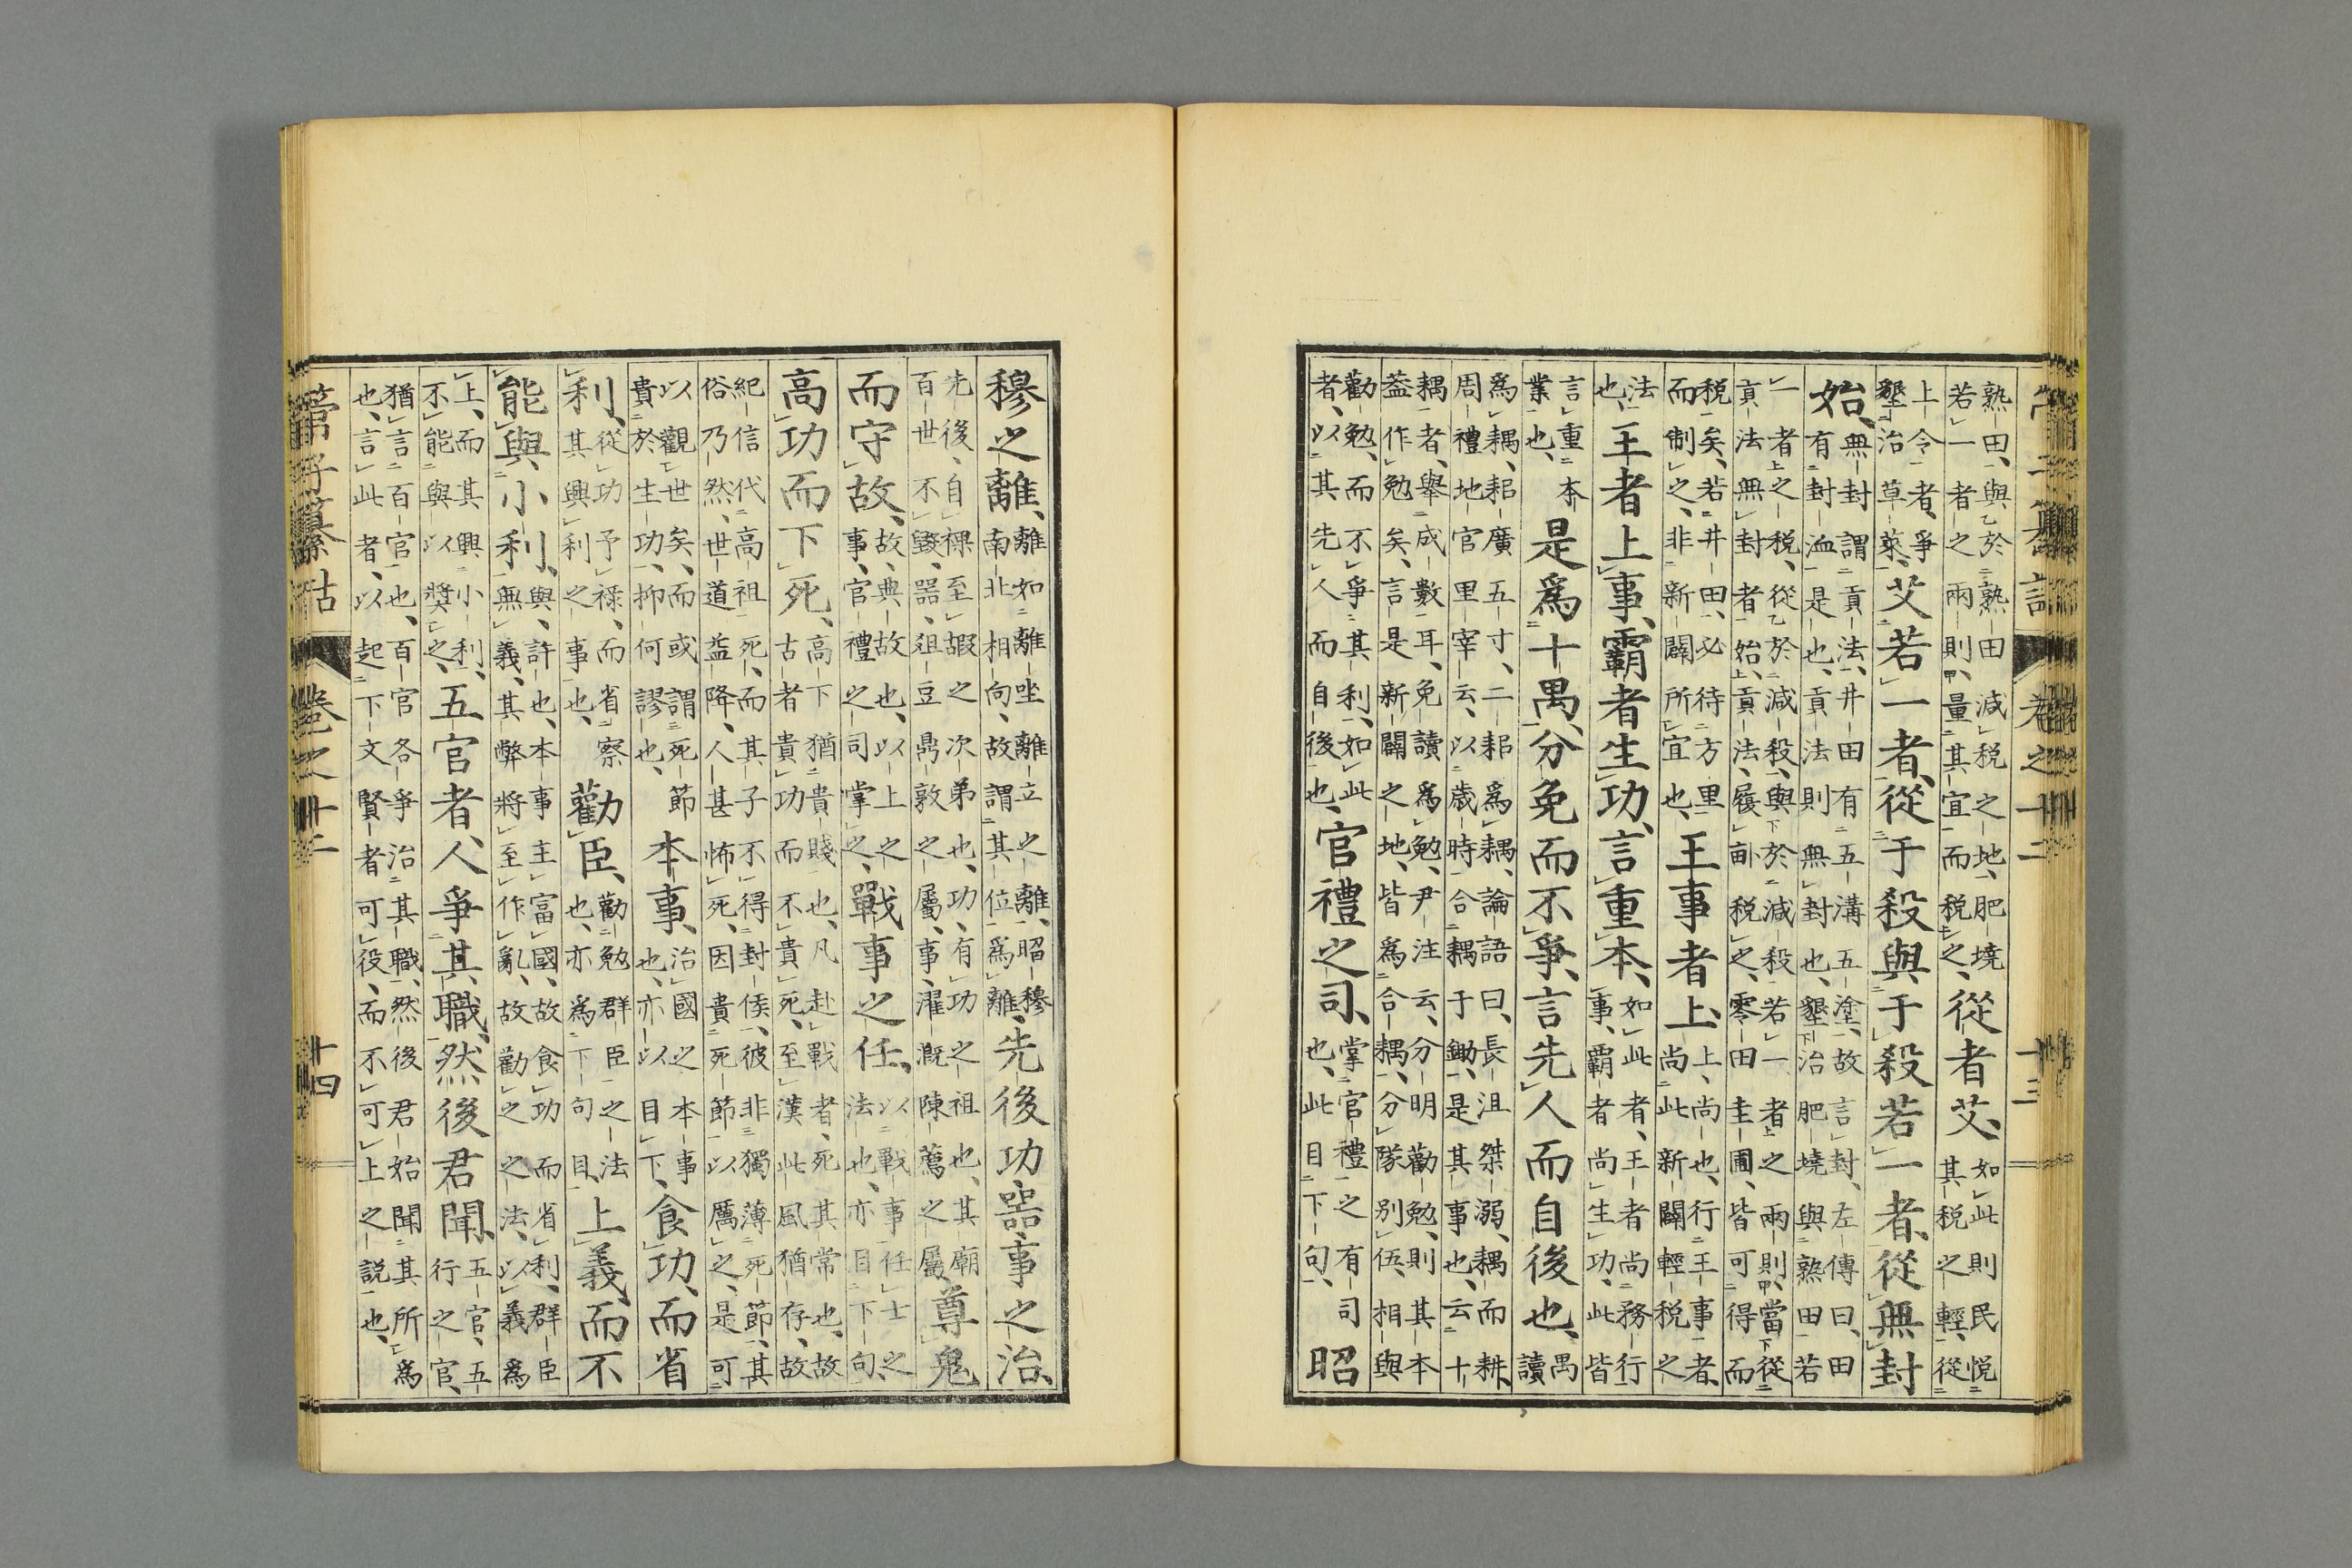 管子纂詁　卷之十二　十三
熟田、與於熟田減税之地、肥墝
若一者之兩則、量其宜而税之、
從者艾、
如此則民悦
其税之輕、從
上令者、爭
墾治草萊、
艾若一者、從于殺與于殺若一者、從無封
始、
無封謂貢法、井田有五溝五塗、故言封、左傳曰、田
有封洫是也、貢法則無封也、墾治肥墝與熟田若
一者之税、從於減殺、與於減殺若一者之兩則、當從
貢法無封者始、貢法、履畝税之、零田圭圃、皆可得而
税矣、若井田、必待方里
而制之、非新闢所宜也、
王事者上、
上、尚也、行王事者、
尚此新闢輕税之
法
也、
王者上事、霸者生功、言重本、
如此者、王者尚務行
事、覇者尚生功、此皆
言重本
業也、
是爲十禺、分免而不爭、言先人而自後也、
禺
讀
爲耦、耜廣五寸、二耜爲耦、論語曰、長沮桀溺、耦而耕、
周禮地官里宰云、以歳時合耦于鋤、是其事也、云十
耦者、舉成數耳、免讀爲勉、尹注云、分明勸勉、則其本
葢作勉矣、言是新闢之地、皆爲合耦、分隊別伍、相與
勸勉、而不爭其利、如此
者、以其先人而自後也、
官禮之司、
掌官禮之有司
也、此目下句、
昭
穆之離、
離如離坐離立之離、昭穆
南北相向、故謂其位爲離、
先後功器事之治、
先後、自祼至嘏之次弟也、功、有功之祖也、其廟
百世不毀、器、俎豆鼎敦之屬、事、濯漑陳薦之屬
尊鬼
而守故、
故、典故也、以上之
事、官禮之司掌之、
戰事之任、
以戰事任士之
法也、亦目下句、
高功而下死、
高下猶貴賤也、凡赴戰者、死其常也、故
古者貴功而不貴死、至漢此風猶存、故
紀信代高祖死、而其子不得封侯、彼非獨薄死節、其
俗乃然、世道益降、人甚怖死、因貴死節以厲之、是可
以觀世矣、而或謂死節
貴於生功、抑何謬也、
本事、
治國之本事
也、亦以目下、
食功、而省
利、
從功予祿、而省察
其興利之事也、
勸臣、
勸勉群臣之法
也、亦爲下句目、
上義、而不
能與小利、
與、許也、本事主富國、故食功而省利、群臣
無義、其弊將至作亂、故勸之之法、以義爲
上、而其興小利、
不能與以奬之、
五官者、人爭其職、然後君聞、
五官、五
行之官、
猶言百官也、百官各爭治其職、然後君始聞其所爲
也、言此者、以起下文賢者可役、而不可上之説也、
管子纂詁　卷之十二　十四